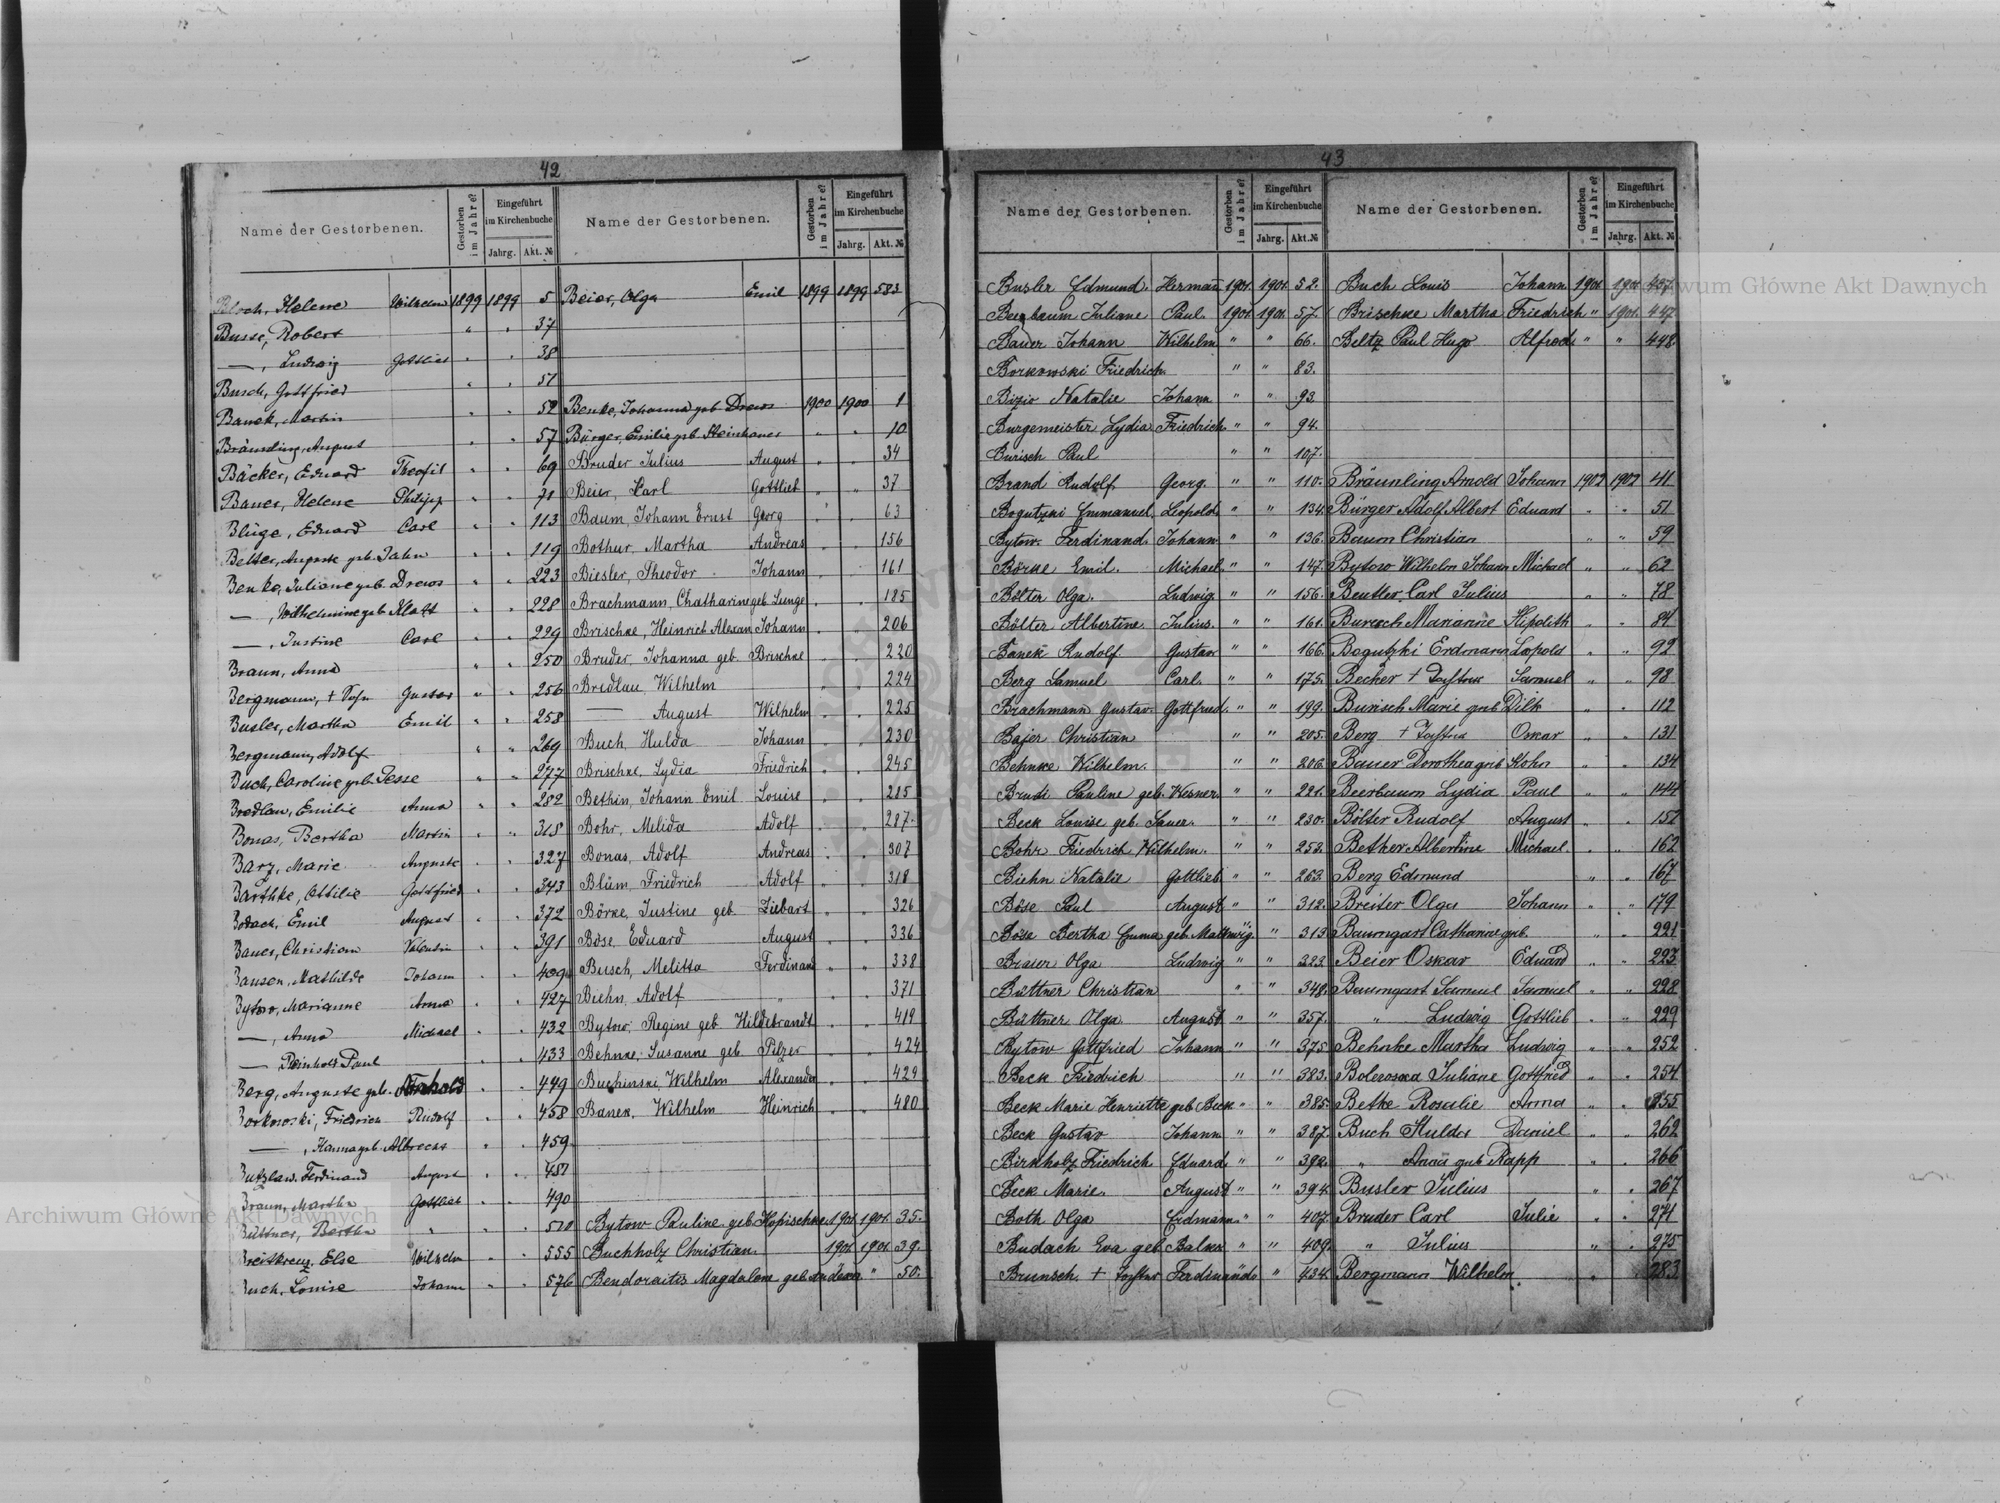 42
Name der Gestorbenen. Gestorben im Jahre? Eingeführt im Kirchenbuche Jahrg. Akt. №
Name der Gestorbenen. Gestorben im Jahre? Eingeführt im Kirchenbuche Jahrg. Akt. №
Helene Wilhelm 1899 1899 5
Busse, Robert " " 37
—, Ludwig Gottlieb " " 38
Busch, Gottfried " " 51
Banek, Martin " " 52
Bräunling, August " " 57
Bäcker, Eduard Theofil " " 69
Bauer, Helene Philipp " " 71
Blüge, Eduard Carl " " 113
Auguste geb. Jahn " " 119
Benke, Juliane geb. Drews " " 223
—, Wilhelmine geb. Klatt " " 228
—, Justine Carl " " 229
Braun, Anna " " 250
Bergmann, + Sohn Gustav " " 256
Busler, Martha Emil " " 258
Bergmann, Adolf " " 269
Buch, Caroline geb. Jesse " " 277
Bredlau, Emilie Anna " " 282
Bonas, Bertha Martin " " 318
Barz, Marie Auguste " " 327
Barthke, Ottilie Gottfried " " 343
Emil August " " 372
Bauer, Christian Valentin " " 391
Mathilde Johann " " 409
Bytow, Marianne Anna " " 427
—, Anna Michael " " 432
—, Reinhold Paul " " 433
Berg, Auguste geb. " " 449
Borkowski, Friedrich Rudolf " " 458
—, Hanna geb. Albrecht " " 459
Butzlaw, Ferdinand August " " 487
Braun, Martha Gottlieb " " 490
Büttner, Bertha " " " 510
Breitkreuz, Else Wilhelm " " 555
Buch, Louise Johann " " 576
Beier, Olga Emil 1899 1899 583
Benke, Johanna geb. Drews 1900 1900 1
Bürger, Emilie geb. Steinhauer " " 10
Bruder Julius August " " 34
Beier, Karl Gottlieb " " 37
Baum, Johann Ernst Georg " " 63
Bothur, Martha Andreas " " 156
Biesler, Theodor Johann " " 161
Brachmann, Chatharine geb. Lunge " " 185
Brischke, Heinrich Alexan Johann " " 206
Bruder, Johanna geb. Brischke " " 220
Bredlau Wilhelm " " 224
— August Wilhelm " " 225
Buch, Hulda Johann " " 230
Brischke, Lydia Friedrich " " 245
Bethin, Johann Emil Louise " " 285
Bohr, Melida Adolf " " 287
Bonas, Adolf Andreas " " 307
Blüm, Friedrich Adolf " " 318
Börke, Justine geb. Ziebart " " 326
Böse, Eduard August " " 336
Busch, Melitta Ferdinand " " 338
Biehn, Adolf " " " 371
Bytow, Regine geb. Hildebrandt " " 419
Behnke, Susanne geb. Pilzer " " 424
Buchinski, Wilhelm Alexander " " 429
Banek, Wilhelm Heinrich " " 480
Bytow Pauline geb. Hopischke 1901. 1901. 35.
Buchholz Christian 1901. 1901. 39.
Bendoraitis Magdalene geb. " 50.
43
Name der Gestorbenen. Gestorben im Jahre? Eingeführt im Kirchenbuche Jahrg. Akt. №
Name der Gestorbenen. Gestorben im Jahre? Eingeführt im Kirchenbuche Jahrg. Akt. №
Busler Edmund Herman 1901. 1901. 52.
Juliane Paul. 1901. 1901. 57.
Bauer Johann Wilhelm " " 66.
Borkowski Friedrich. " " 83.
Bizio Natalie Johann " " 93.
Burgemeister Lydia Friedrich " " 94.
Burisch Paul " " 107.
Brand Rudolf Georg. " " 110.
Bogutzki Emmanuel Leopold. " " 134.
Bytow. Ferdinand. Johann " " 136.
Börke Emil. Michael. " " 147.
Bölter Olga. Ludwig " " 156.
Bölter Albertine. Julius. " " 161.
Banek Rudolf Gustav " " 166.
Berg Samuel Carl. " " 175.
Brachmann Gustav. Gottfried. " " 199.
Bajer Christian " " 205.
Behnke Wilhelm. " " 206.
Pauline geb. Wesner. " " 221.
Beck Louise geb. Sauer. " " 230.
Bohr Friedrich Wilhelm. " " 253.
Biehn Natalie Gottlieb " " 263.
Böse Paul August " " 312.
Böse Bertha Emma geb. " " 313.
Brauer Olga Ludwig " " 323.
Büttner Christian " " 348.
Büttner Olga August " " 357.
Bytow Gottfried Johann " " 375.
Beck Friedrich " " 383.
Beck Marie Henriette geb. Beck " " 385.
Beck Gustav Johann " " 387.
Birkholz Friedrich Eduard " " 392.
Beck Marie. August " " 394.
Both Olga Erdmann. " " 407.
Budach Eva geb. " " 409.
Brunsch + Ferdinand " " 434.
Buch Louis Johann 1901. 1901. 437.
Brischke Martha Friedrich " 1901. 447.
Beltz Paul Hugo Alfred " " 448.
Bräunling Arnold Johann 1902 1902 41
Bürger Adolf Albert Eduard " " 51
Baum Christian " " 59
Bytow Wilhelm Johann Michael " " 62
Beutler Carl Julius " " 78
Marianne Hipolith " " 84
Bogutzki Erdmann Leopold " " 92
Becher + Samuel " " 98
Burisch Marie geb. Dilk " " 112
Berg + Oskar " " 131
Bauer Dorothea geb. Hohn " " 134
Beerbaum Lydia Paul " " 144
Bölter Rudolf August " " 152
Bether Albertine Michael. " " 162
Berg Edmund " " 167
Breiter Olga Johann " " 179
Baumgart Catharine geb. " " 221
Beier Oskar Eduard " " 223
Baumgart Samuel Samuel " " 228
" Ludwig Gottlieb " " 229
Behnke Martha Ludwig " " 252
Juliane Gottfried " " 254
Betke Rosalie Anna " " 255
Buch Hulda Daniel " " 262
" Anna geb. Rapp " " 266
Busler Julius " " 267
Bruder Carl Julie " " 271
" Julius " " 275
Bergmann Wilhelm " " 283
Archiwum Główne Akt Dawnych
Archiwum Główne Akt Dawnych